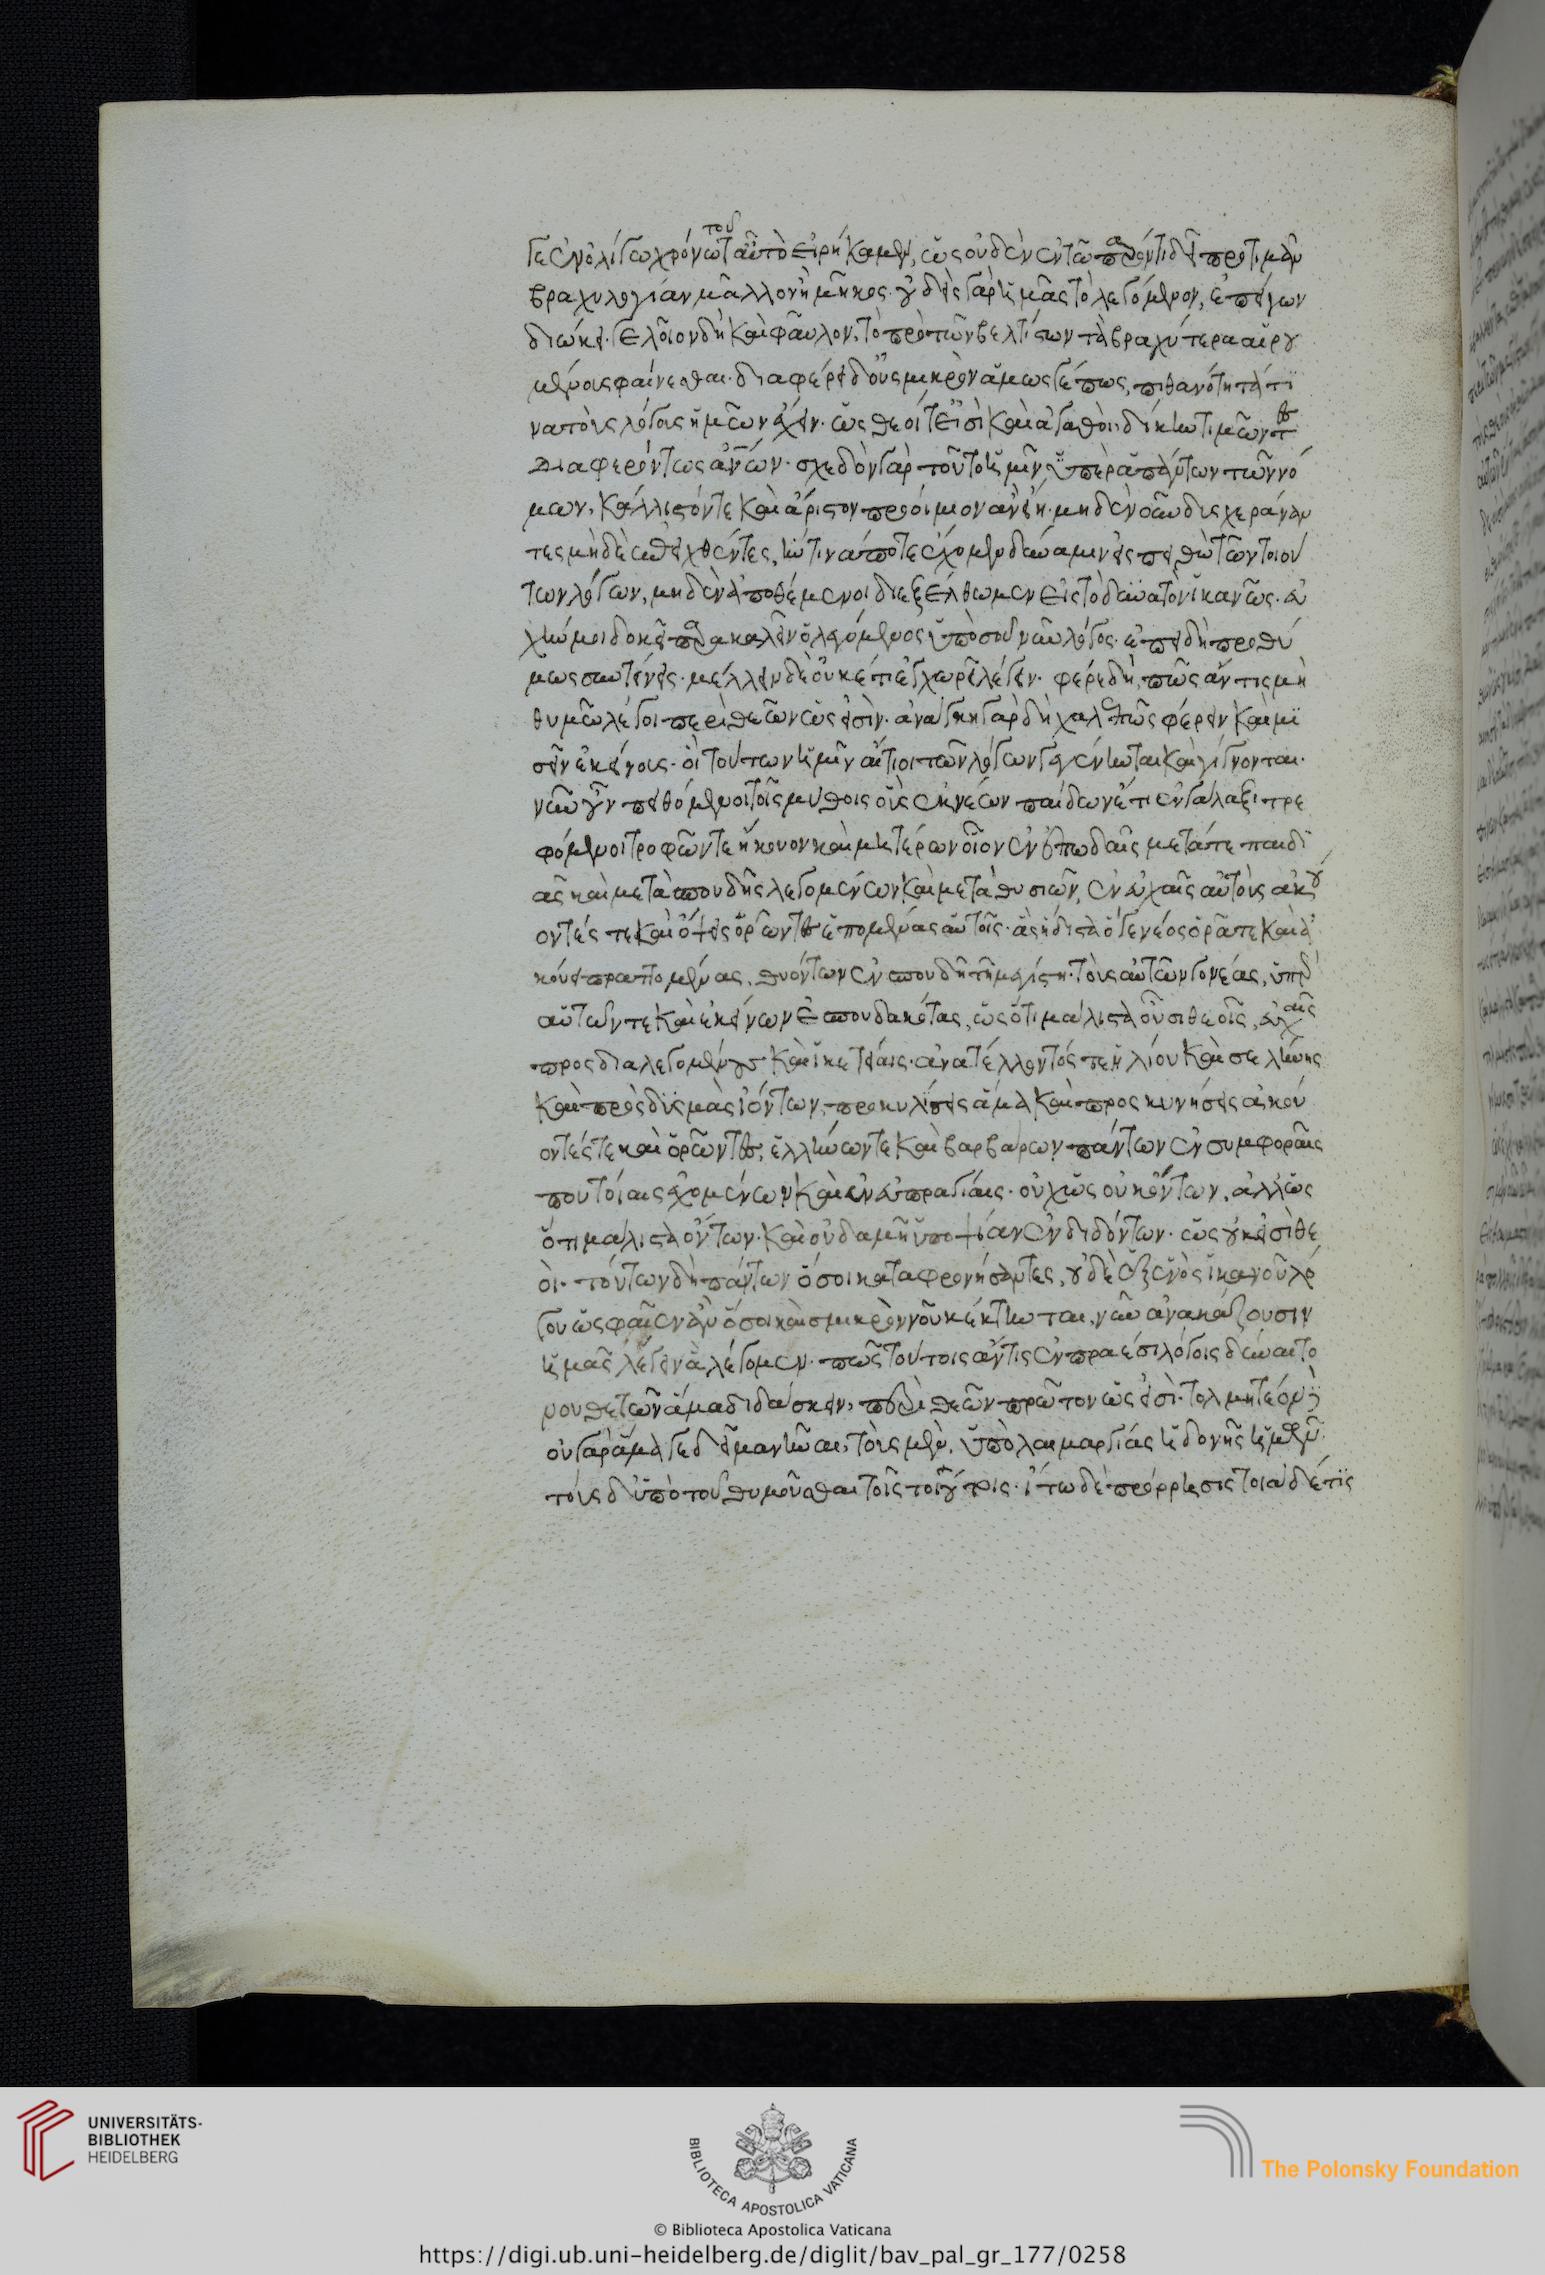 γε ἐν ὀλίγω χρόνω τουτ' αὐτὸ εἰρήκαμεν, ὡς οὐδὲν ἐν τῶ παρόντι δεῖ προτιμᾶν
βραχυλογίαν μᾶλλον ἢ μῆκος. οὐδεὶς γὰρ ἡμᾶς τὸ λεγόμενον, ἐπείγων
διώκει. γελοῖον δὴ καὶ φαῦλον, τὸ πρὸ τῶν βελτίστων τὰ βραχύτερα αἱρου
μένοις φαίνεσθαι. διαφέρει δ' οὐ σμικρὸν ἄμως γέ πως, πιθανότητά τι
να τοὺς λόγους ἡμῶν ἔχειν. ὡς θεοί τ' εἰσὶ καὶ ἀγαθοὶ, δίκην τιμῶντες
διαφερόντως ἀνῶν. σχεδὸν γὰρ τοῦτο ἡμῖν ὑπὲρ ἁπάντων τῶν νό
μων, κάλλιστόν τε καὶ ἄριστον προοίμιον ἂν εἴη. μηδὲν οὖν δυσχεράναν
τες μηδὲ ἐπειχθέντες, ἥντινά ποτε ἔχομεν δύναμιν εἰς πειθὼ τῶν τοιού
των λόγων, μηδὲν ἀποθέμενοι διεξέλθωμεν εἰς τὸ δυνατὸν ἱκανῶς. εὐ
χήν μοι δοκεῖ παρακαλεῖν ὁ λεγόμενος ὑπὸ σοῦ νῦν λόγος. ἐπειδὴ προθύ
μως συντείνεις. μέλλειν δὲ οὐκέτι ἐγχωρεῖ λέγειν. φέρε δὴ, πῶς ἄν τις μὴ
θυμῶ λέγοι περὶ θεῶν ὡς εἰσὶν. ἀνάγκη γὰρ δὴ χαλεπῶς φέρειν καὶ μι
σεῖν ἐκείνους. οἳ τούτων ἡμῖν αἴτιοι τῶν λόγων γεγένηνται καὶ γίγνονται.
νῦν οὖν πειθόμενοι τοῖς μύθοις οὓς ἐκ νέων παίδων ἔτι ἐν γάλαξι τρε
φόμενοι τροφῶν τε ἤκουον καὶ μητέρων οἷον ἐν ἐπωδαῖς μετά τε παιδι
ᾶς καὶ μετὰ σπουδῆς λεγομένων καὶ μετὰ θυσιῶν, ἐν εὐχαῖς αὐτοὺς ἀκού
οντές τε καὶ ὄψεις ὁρῶντες ἑπομένας αὐτοῖς. ἃς ἥδιστα ὅ γε νέος ὁρᾶ τε καὶ ἀ
κούει πραττομένας, θυόντων ἐν σπουδῆ τῆ μεγίστη. τοὺς αὐτῶν γονέας, ὑπὲρ
αὑτῶν τε καὶ ἐκείνων ἐσπουδακότας, ὡς ὅτι μάλιστα οὖσι θεοῖς, εὐχαῖς
προσδιαλεγομένους καὶ ἱκετείαις. ἀνατέλλοντός τε ἡλίου καὶ σελήνης
καὶ πρὸς δυσμὰς ἰόντων, προκυλίσεις ἅμα καὶ προσκυνήσεις ἀκού
οντές τε καὶ ὁρῶντες, ἑλλήνων τε καὶ βαρβάρων πάντων ἐν συμφοραῖς
παντοίαις ἐχομένων καὶ ἐν εὐπραγίαις. οὐχ ὡς οὐκ ὄντων, ἀλλ' ὡς
ὅτι μάλιστα ὄντων. καὶ οὐδαμῆ ὑποψίαν ἐνδιδόντων. ὡς οὐκ εἰσὶ θε
οὶ. τούτων δὴ πάντων ὅσοι καταφρονήσαντες, οὐδὲ ἐξ ἑνὸς ἱκανοῦ λό
γου ὡς φαῖεν ἂν ὅσοι καὶ σμικρὸν νοῦ κέκτηνται, νῦν ἀνακάζουσιν
ἡμᾶς λέγειν ἃ λέγομεν. πῶς τούτους ἄν τις ἐν πραέσι λόγοις δύναιτο
νουθετῶν ἅμα διδάσκειν, περὶ θεῶν πρῶτον ὡς εἰσὶ. τολμητέον
οὐ γὰρ ἅμα γε δεῖ μανῆναι, τοὺς μὲν, ὑπὸ λαιμαργίας ἡδονῆς ἡμῶν.
τοὺς δ' ὑπὸ τοῦ θυμοῦσθαι τοῖς τοιούτοις. ἴτω δὲ πρόρρησις τοιάδέ τις
UNIVERSITÄTS-
BIBLIOTHEK
HEIDELBERG
BIBLIOTECA APOSTOLICA VATICANA
The Polonsky Foundation
© Biblioteca Apostolica Vaticana
https://digi.ub.uni-heidelberg.de/diglit/bav_pal_gr_177/0258